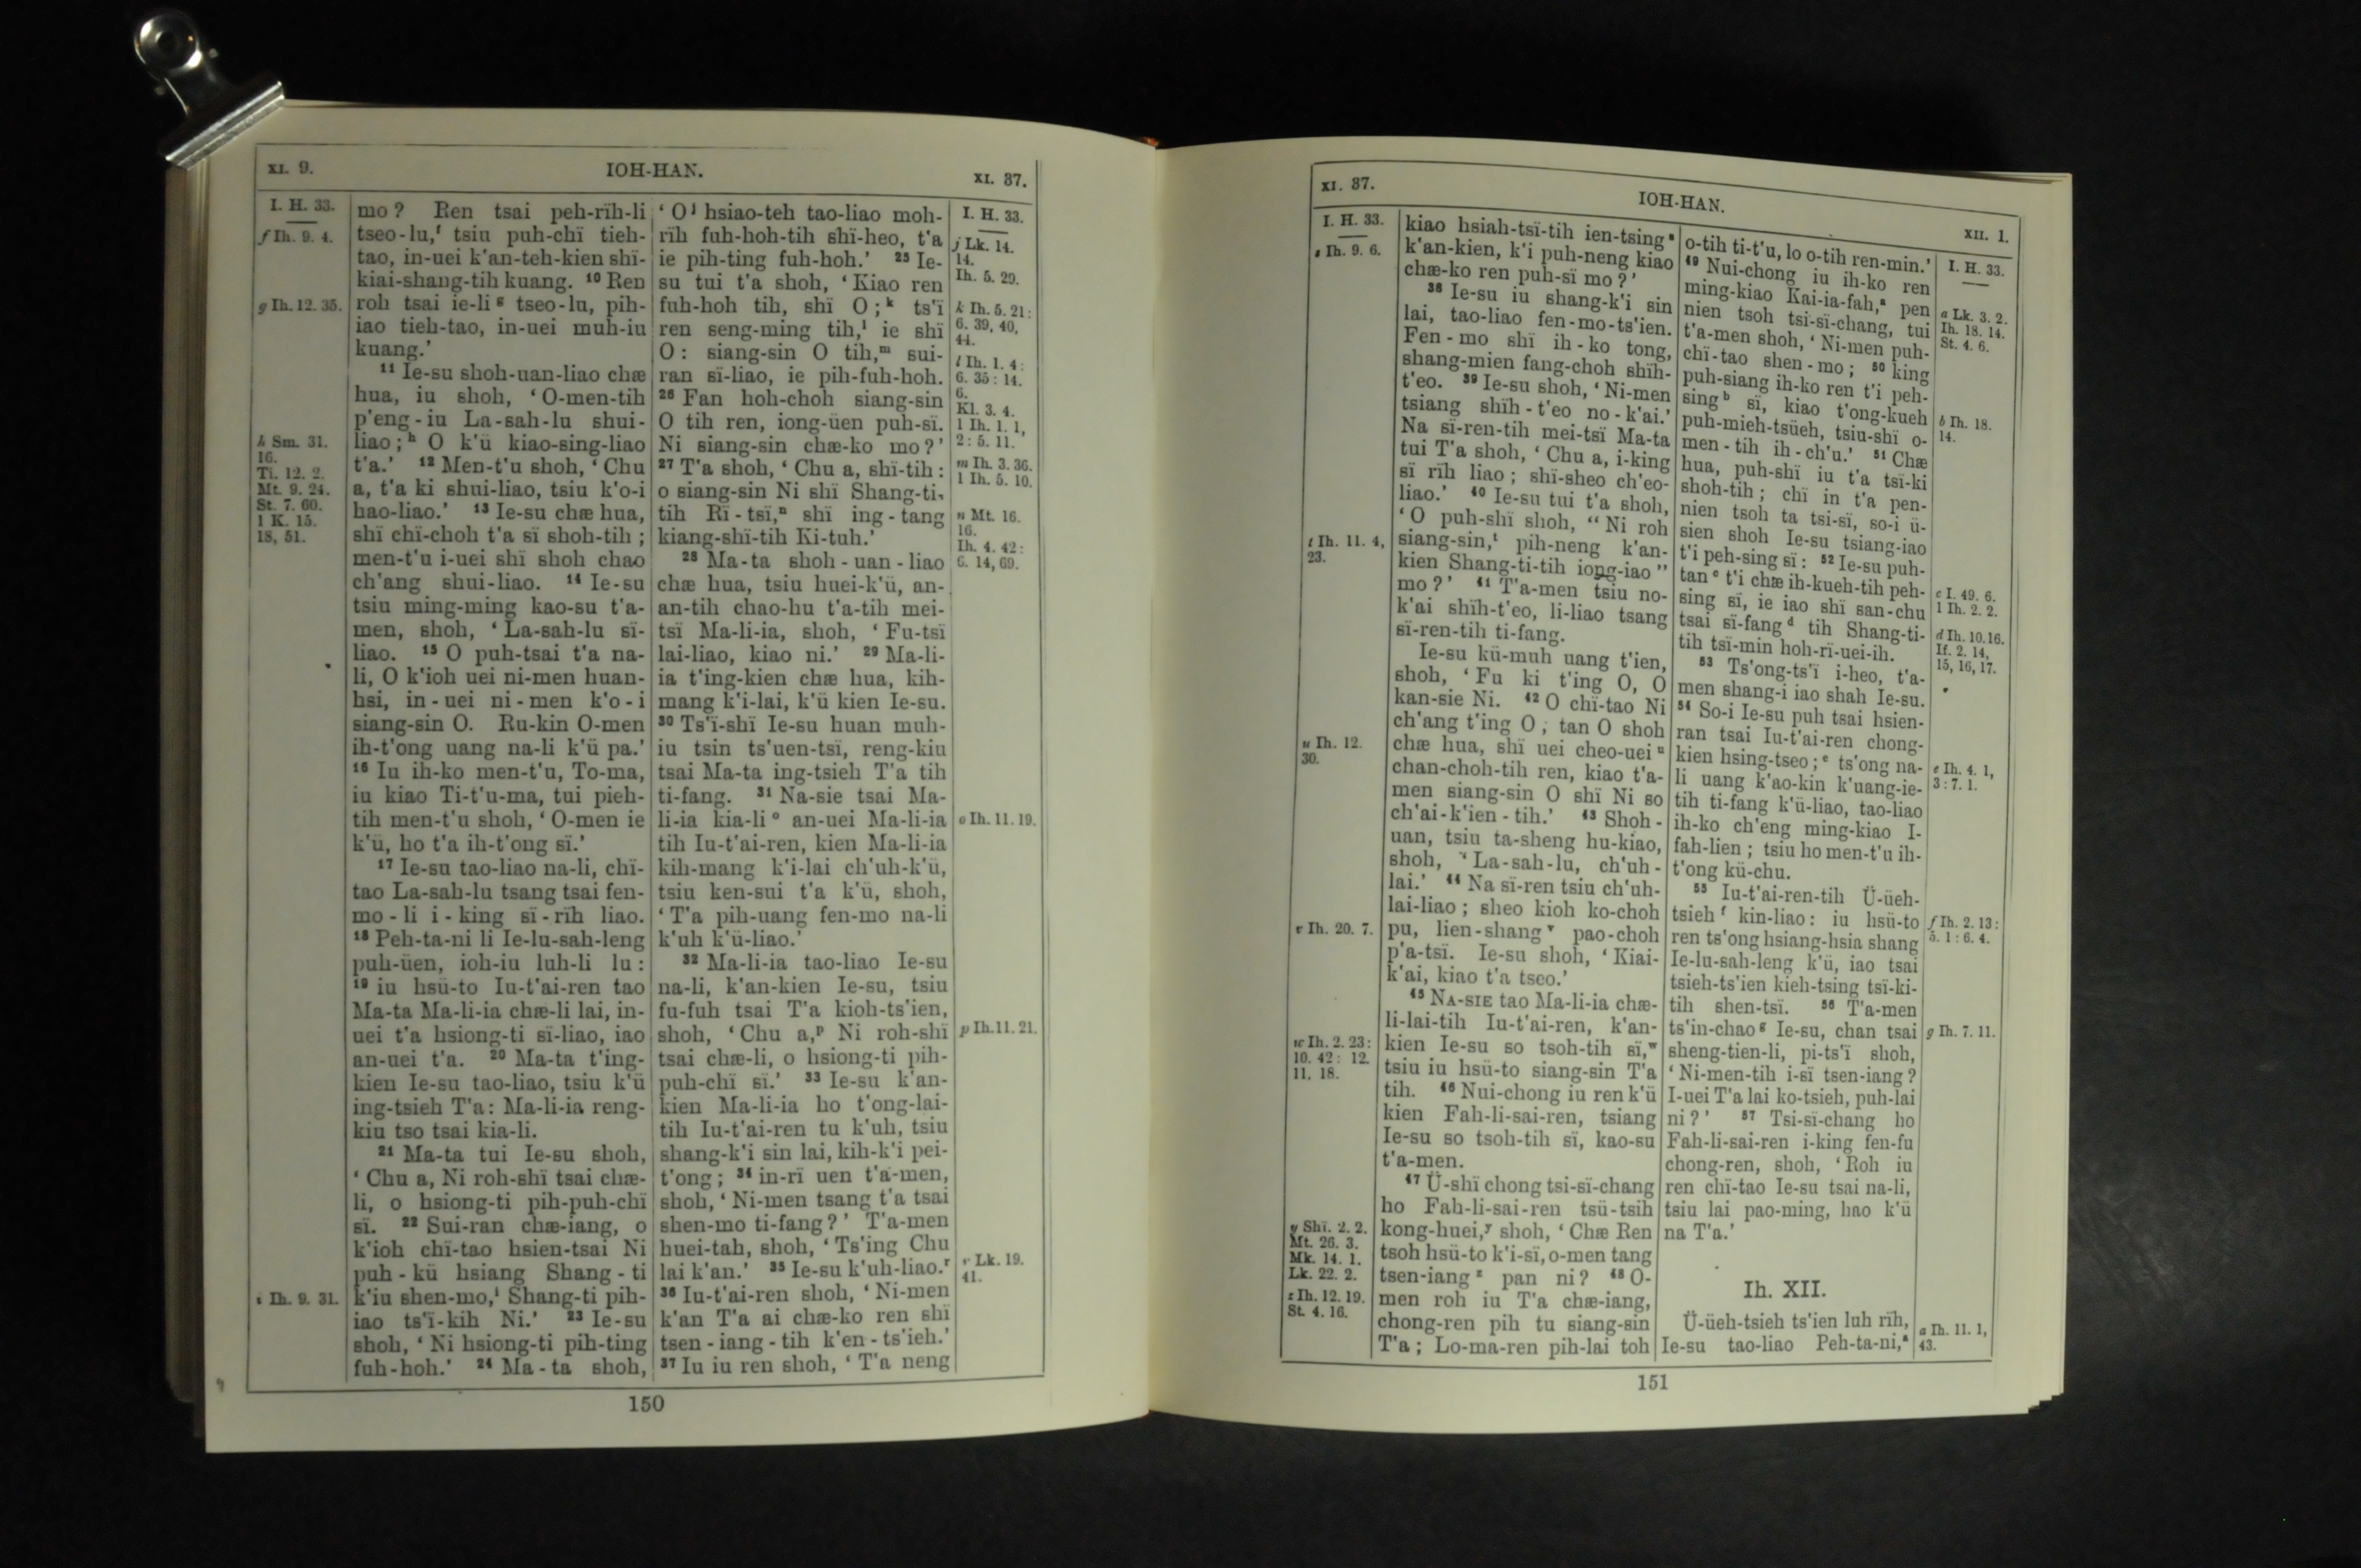 XI. 9.
IOH-HAN.
XI. 37.
I. H. 33.
f Ih. 9. 4.
g Ih. 12. 35.
h Sm. 31.
16.
Ti. 12. 2.
Mt. 9. 24.
St. 7. 60.
1 K. 15.
18, 51.
i Ih. 9. 31.
mo? Ren tsai peh-rïh-li
tseo-lu,f tsiu puh-chï tieh-
tao, in-uei k'an-teh-kien shï-
kiai-shang-tih kuang. 10 Ren
roh tsai ie-li g tseo-lu, pih-
iao tieh-tao, in-uei muh-iu
kuang.'
11 Ie-su shoh-uan-liao chæ
hua, iu shoh, ‘O-men-tih
p'eng-iu La-sah-lu shui-
liao;h O k'ü kiao-sing-liao
t'a.' 12 Men-t'u shoh, ‘Chu
a, t'a ki shui-liao, tsiu k'o-i
hao-liao.' 13 Ie-su chæ hua,
shï chï-choh t'a sï shoh-tih;
men-t'u i-uei shï shoh chao
ch'ang shui-liao. 14 Ie-su
tsiu ming-ming kao-su t'a-
men, shoh, ‘La-sah-lu sï-
liao. 15 O puh-tsai t'a na-
li, O k'ioh uei ni-men huan-
hsi, in-uei ni-men k'o-i
siang-sin O. Ru-kin O-men
ih-t'ong uang na-li k'ü pa.'
16 Iu ih-ko men-t'u, To-ma,
iu kiao Ti-t'u-ma, tui pieh-
tih men-t'u shoh, ‘O-men ie
k'ü, ho t'a ih-t'ong sï.'
17 Ie-su tao-liao na-li, chï-
tao La-sah-lu tsang tsai fen-
mo-li i-king sï-rïh liao.
18 Peh-ta-ni li Ie-lu-sah-leng
puh-üen, ioh-iu luh-li lu:
19 iu hsü-to Iu-t'ai-ren tao
Ma-ta Ma-li-ia chæ-li lai, in-
uei t'a hsiong-ti sï-liao, iao
an-uei t'a. 20 Ma-ta t'ing-
kien Ie-su tao-liao, tsiu k'ü
ing-tsieh T'a: Ma-li-ia reng-
kiu tso tsai kia-li.
21 Ma-ta tui Ie-su shoh,
‘Chu a, Ni roh-shï tsai chæ-
li, o hsiong-ti pih-puh-chï
sï. 22 Sui-ran chæ-iang, o
k'ioh chï-tao hsien-tsai Ni
puh-kü hsiang Shang-ti
k'iu shen-mo,i Shang-ti pih-
iao ts'ï-kih Ni.' 23 Ie-su
shoh, ‘Ni hsiong-ti pih-ting
fuh-hoh.' 24 Ma-ta shoh,
‘O j hsiao-teh tao-liao moh-
rïh fuh-hoh-tih shï-heo, t'a
ie pih-ting fuh-hoh.' 25 Ie-
su tui t'a shoh, ‘Kiao ren
fuh-hoh tih, shï O;k ts'ï
ren seng-ming tih,l ie shï
O: siang-sin O tih,m sui-
ran sï-liao, ie pih-fuh-hoh.
26 Fan hoh-choh siang-sin
O tih ren, iong-üen puh-sï.
Ni siang-sin chæ-ko mo?'
27 T'a shoh, ‘Chu a, shï-tih:
o siang-sin Ni shï Shang-ti-
tih Rï-tsï,n shï ing-tang
kiang-shï-tih Ki-tuh.'
28 Ma-ta shoh-uan-liao
chæ hua, tsiu huei-k'ü, an-
an-tih chao-hu t'a-tih mei-
tsï Ma-li-ia, shoh, ‘Fu-tsï
lai-liao, kiao ni.' 29 Ma-li-
ia t'ing-kien chæ hua, kih-
mang k'i-lai, k'ü kien Ie-su.
30 Ts'ï-shï Ie-su huan muh-
iu tsin ts'uen-tsï, reng-kiu
tsai Ma-ta ing-tsieh T'a tih
ti-fang. 31 Na-sie tsai Ma-
li-ia kia-li o an-uei Ma-li-ia
tih Iu-t'ai-ren, kien Ma-li-ia
kih-mang k'i-lai ch'uh-k'ü,
tsiu ken-sui t'a k'ü, shoh,
‘T'a pih-uang fen-mo na-li
k'uh k'ü-liao.'
32 Ma-li-ia tao-liao Ie-su
na-li, k'an-kien Ie-su, tsiu
fu-fuh tsai T'a kioh-ts'ien,
shoh, ‘Chu a,p Ni roh-shï
tsai chæ-li, o hsiong-ti pih-
puh-chï sï.' 33 Ie-su k'an-
kien Ma-li-ia ho t'ong-lai-
tih Iu-t'ai-ren tu k'uh, tsiu
shang-k'i sin lai, kih-k'i pei-
t'ong; 34 in-rï uen t'a-men,
shoh, ‘Ni-men tsang t'a tsai
shen-mo ti-fang?' T'a-men
huei-tah, shoh, ‘Ts'ing Chu
lai k'an.' 35 Ie-su k'uh-liao.r
36 Iu-t'ai-ren shoh, ‘Ni-men
k'an T'a ai chæ-ko ren shï
tsen-iang-tih k'en-ts'ieh.'
37 Iu iu ren shoh, ‘T'a neng
I. H. 33.
j Lk. 14.
14.
Ih. 5. 29.
k Ih. 5. 21:
6. 39, 40,
44.
l Ih. 1. 4:
6. 35: 14.
6.
Kl. 3. 4.
1 Ih. 1. 1,
2: 5. 11.
m Ih. 3. 36.
1 Ih. 5. 10.
n Mt. 16.
16.
Ih. 4. 42:
6. 14, 69.
o Ih. 11. 19.
p Ih. 11. 21.
r Lk. 19.
41.
150
XI. 37.
IOH-HAN.
XII. 1.
I. H. 33.
s Ih. 9. 6.
t Ih. 11. 4,
23.
u Ih. 12.
30.
v Ih. 20. 7.
w Ih. 2. 23:
10. 42: 12.
11, 18.
y Shï. 2. 2.
Mt. 26. 3.
Mk. 14. 1.
Lk. 22. 2.
z Ih. 12. 19.
St. 4. 16.
kiao hsiah-tsï-tih ien-tsing s
k'an-kien, k'i puh-neng kiao
chæ-ko ren puh-sï mo?'
38 Ie-su iu shang-k'i sin
lai, tao-liao fen-mo-ts'ien.
Fen-mo shï ih-ko tong,
shang-mien fang-choh shïh-
t'eo. 39 Ie-su shoh, ‘Ni-men
tsiang shïh-t'eo no-k'ai.'
Na sï-ren-tih mei-tsï Ma-ta
tui T'a shoh, ‘Chu a, i-king
sï rïh liao; shï-sheo ch'eo-
liao.' 40 Ie-su tui t'a shoh,
‘O puh-shï shoh, “Ni roh
siang-sin,t pih-neng k'an-
kien Shang-ti-tih iong-iao”
mo?' 41 T'a-men tsiu no-
k'ai shïh-t'eo, li-liao tsang
sï-ren-tih ti-fang.
Ie-su kü-muh uang t'ien,
shoh, ‘Fu ki t'ing O, O
kan-sie Ni. 42 O chï-tao Ni
ch'ang t'ing O; tan O shoh
chæ hua, shï uei cheo-uei u
chan-choh-tih ren, kiao t'a-
men siang-sin O shï Ni so
ch'ai-k'ien-tih.' 43 Shoh-
uan, tsiu ta-sheng hu-kiao,
shoh, ‘La-sah-lu, ch'uh-
lai.' 44 Na sï-ren tsiu ch'uh-
lai-liao; sheo kioh ko-choh
pu, lien-shang v pao-choh
p'a-tsï. Ie-su shoh, ‘Kiai-
k'ai, kiao t'a tseo.'
45 NA-SIE tao Ma-li-ia chæ-
li-lai-tih Iu-t'ai-ren, k'an-
kien Ie-su so tsoh-tih sï,w
tsiu iu hsü-to siang-sin T'a
tih. 46 Nui-chong iu ren k'ü
kien Fah-li-sai-ren, tsiang
Ie-su so tsoh-tih sï, kao-su
t'a-men.
47 Ü-shï chong tsi-sï-chang
ho Fah-li-sai-ren tsü-tsih
kong-huei,y shoh, ‘Chæ Ren
tsoh hsü-to k'i-sï, o-men tang
tsen-iang z pan ni? 48 O-
men roh iu T'a chæ-iang,
chong-ren pih tu siang-sin
T'a; Lo-ma-ren pih-lai toh
o-tih ti-t'u, lo o-tih ren-min.'
49 Nui-chong iu ih-ko ren
ming-kiao Kai-ia-fah,a pen
nien tsoh tsi-sï-chang, tui
t'a-men shoh, ‘Ni-men puh-
chï-tao shen-mo; 50 king
puh-siang ih-ko ren t'i peh-
sing b sï, kiao t'ong-kueh
puh-mieh-tsüeh, tsiu-shï o-
men-tih ih-ch'u.' 51 Chæ
hua, puh-shï iu t'a tsï-ki
shoh-tih; chï in t'a pen-
nien tsoh ta tsi-sï, so-i ü-
sien shoh Ie-su tsiang-iao
t'i peh-sing sï: 52 Ie-su puh-
tan c t'i chæ ih-kueh-tih peh-
sing sï, ie iao shï san-chu
tsai sï-fang d tih Shang-ti-
tih tsï-min hoh-rï-uei-ih.
53 Ts'ong-ts'ï i-heo, t'a-
men shang-i iao shah Ie-su.
54 So-i Ie-su puh tsai hsien-
ran tsai Iu-t'ai-ren chong-
kien hsing-tseo;e ts'ong na-
li uang k'ao-kin k'uang-ie-
tih ti-fang k'ü-liao, tao-liao
ih-ko ch'eng ming-kiao I-
fah-lien; tsiu ho men-t'u ih-
t'ong kü-chu.
55 Iu-t'ai-ren-tih Ü-üeh-
tsieh f kin-liao: iu hsü-to
ren ts'ong hsiang-hsia shang
Ie-lu-sah-leng k'ü, iao tsai
tsieh-ts'ien kieh-tsing tsï-ki-
tih shen-tsï. 56 T'a-men
ts'in-chao g Ie-su, chan tsai
sheng-tien-li, pi-ts'ï shoh,
‘Ni-men-tih i-sï tsen-iang?
I-uei T'a lai ko-tsieh, puh-lai
ni?' 57 Tsi-sï-chang ho
Fah-li-sai-ren i-king fen-fu
chong-ren, shoh, ‘Roh iu
ren chï-tao Ie-su tsai na-li,
tsiu lai pao-ming, hao k'ü
na T'a.'
Ih. XII.
Ü-üeh-tsieh ts'ien luh rïh,
Ie-su tao-liao Peh-ta-ni,a
I. H. 33.
a Lk. 3. 2.
Ih. 18. 14.
St. 4. 6.
b Ih. 18.
14.
c I. 49. 6.
1 Ih. 2. 2.
d Ih. 10. 16.
If. 2. 14,
15, 16, 17.
e Ih. 4. 1,
3: 7. 1.
f Ih. 2. 13:
5. 1: 6. 4.
g Ih. 7. 11.
a Ih. 11. 1,
43.
151